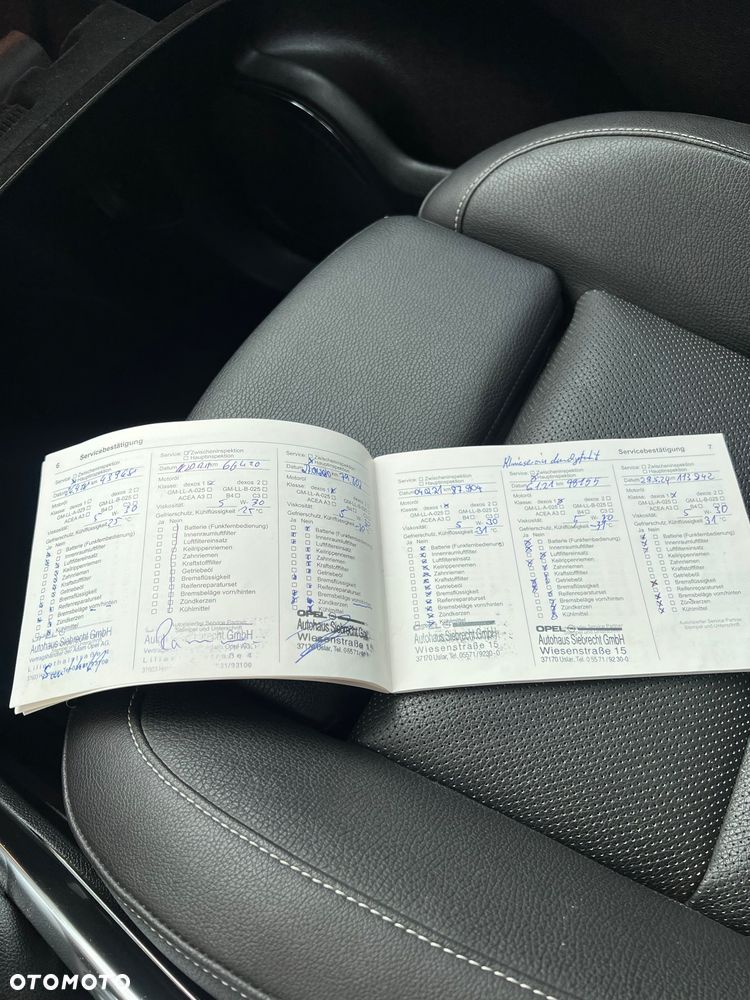 6
Servicebestätigung
Service: Zwischeninspektion
Hauptinspektion
Datum km 43948
Motoröl
Klasse: dexos 1 dexos 2
GM-LL-A-025 GM-LL-B-025
ACEA A3 B4 C3
Viskosität: 5 W-
Gefrierschutz, Kühlflüssigkeit 25 °C
Ja Nein
Batterie (Funkfernbedienung)
Innenraumluftfilter
Luftfiltereinsatz
Keilrippenriemen
Zahnriemen
Kraftstofffilter
Getriebeöl
Bremsflüssigkeit
Reifenreparaturset
Bremsbeläge vorn/hinten
Zündkerzen
Kühlmittel
Autohaus Siebrecht GmbH
Service: Zwischeninspektion
Hauptinspektion
Datum km 66420
Motoröl
Klasse: dexos 1 dexos 2
GM-LL-A-025 GM-LL-B-025
ACEA A3 B4 C3
Viskosität: 5 W-
Gefrierschutz, Kühlflüssigkeit 25 °C
Ja Nein
Batterie (Funkfernbedienung)
Innenraumluftfilter
Luftfiltereinsatz
Keilrippenriemen
Zahnriemen
Kraftstofffilter
Getriebeöl
Bremsflüssigkeit
Reifenreparaturset
Bremsbeläge vorn/hinten
Zündkerzen
Kühlmittel
Autorisierter Service Partner
Stempel und Unterschrift
GmbH
Service: Zwischeninspektion
Hauptinspektion
Datum km
Motoröl
Klasse: dexos 1 dexos 2
GM-LL-A-025 GM-LL-B-025
ACEA A3 B4 C3
Viskosität: 5 W-30
Gefrierschutz, Kühlflüssigkeit
Ja Nein
Batterie (Funkfernbedienung)
Innenraumluftfilter
Luftfiltereinsatz
Keilrippenriemen
Zahnriemen
Kraftstofffilter
Getriebeöl
Bremsflüssigkeit
Reifenreparaturset
Bremsbeläge vorn/hinten
Zündkerzen
OPEL
Autohaus Siebrecht GmbH
Wiesenstraße 15
37170 Uslar, Tel. 05571/9230-0
Servicebestätigung
7
Service: Zwischeninspektion
Hauptinspektion
Datum km 87904
Motoröl
Klasse: dexos 1 dexos 2
GM-LL-A-025 GM-LL-B-025
ACEA A3 B4 C3
Viskosität: 5 W-30
Gefrierschutz, Kühlflüssigkeit -31 °C
Ja Nein
Batterie (Funkfernbedienung)
Innenraumluftfilter
Luftfiltereinsatz
Keilrippenriemen
Zahnriemen
Kraftstofffilter
Getriebeöl
Bremsflüssigkeit
Reifenreparaturset
Bremsbeläge vorn/hinten
Zündkerzen
Kühlmittel
OPEL
Autohaus Siebrecht GmbH
Wiesenstraße 15
37170 Uslar, Tel. 05571/9230-0
Service: Zwischeninspektion
Hauptinspektion
Datum km 98155
Motoröl
Klasse: dexos 1 dexos 2
GM-LL-A-025 GM-LL-B-025
ACEA A3 B4 C3
Viskosität: W-30
Gefrierschutz, Kühlflüssigkeit °C
Ja Nein
Batterie (Funkfernbedienung)
Innenraumluftfilter
Luftfiltereinsatz
Keilrippenriemen
Zahnriemen
Kraftstofffilter
Getriebeöl
Bremsflüssigkeit
Reifenreparaturset
Bremsbeläge vorn/hinten
Zündkerzen
Kühlmittel
OPEL
Autohaus Siebrecht GmbH
Wiesenstraße 15
37170 Uslar, Tel. 05571/9230-0
Service: Zwischeninspektion
Hauptinspektion
Datum km 113942
Motoröl
Klasse: dexos 1 dexos 2
GM-LL-A-025 GM-LL-B-025
ACEA A3 B4 C3
Viskosität: 5 W-30
Gefrierschutz, Kühlflüssigkeit 31 °C
Ja Nein
Batterie (Funkfernbedienung)
Innenraumluftfilter
Luftfiltereinsatz
Keilrippenriemen
Zahnriemen
Kraftstofffilter
Getriebeöl
Bremsflüssigkeit
Reifenreparaturset
Bremsbeläge vorn/hinten
Zündkerzen
Kühlmittel
Autorisierter Service Partner
Stempel und Unterschrift
OTOMOTO